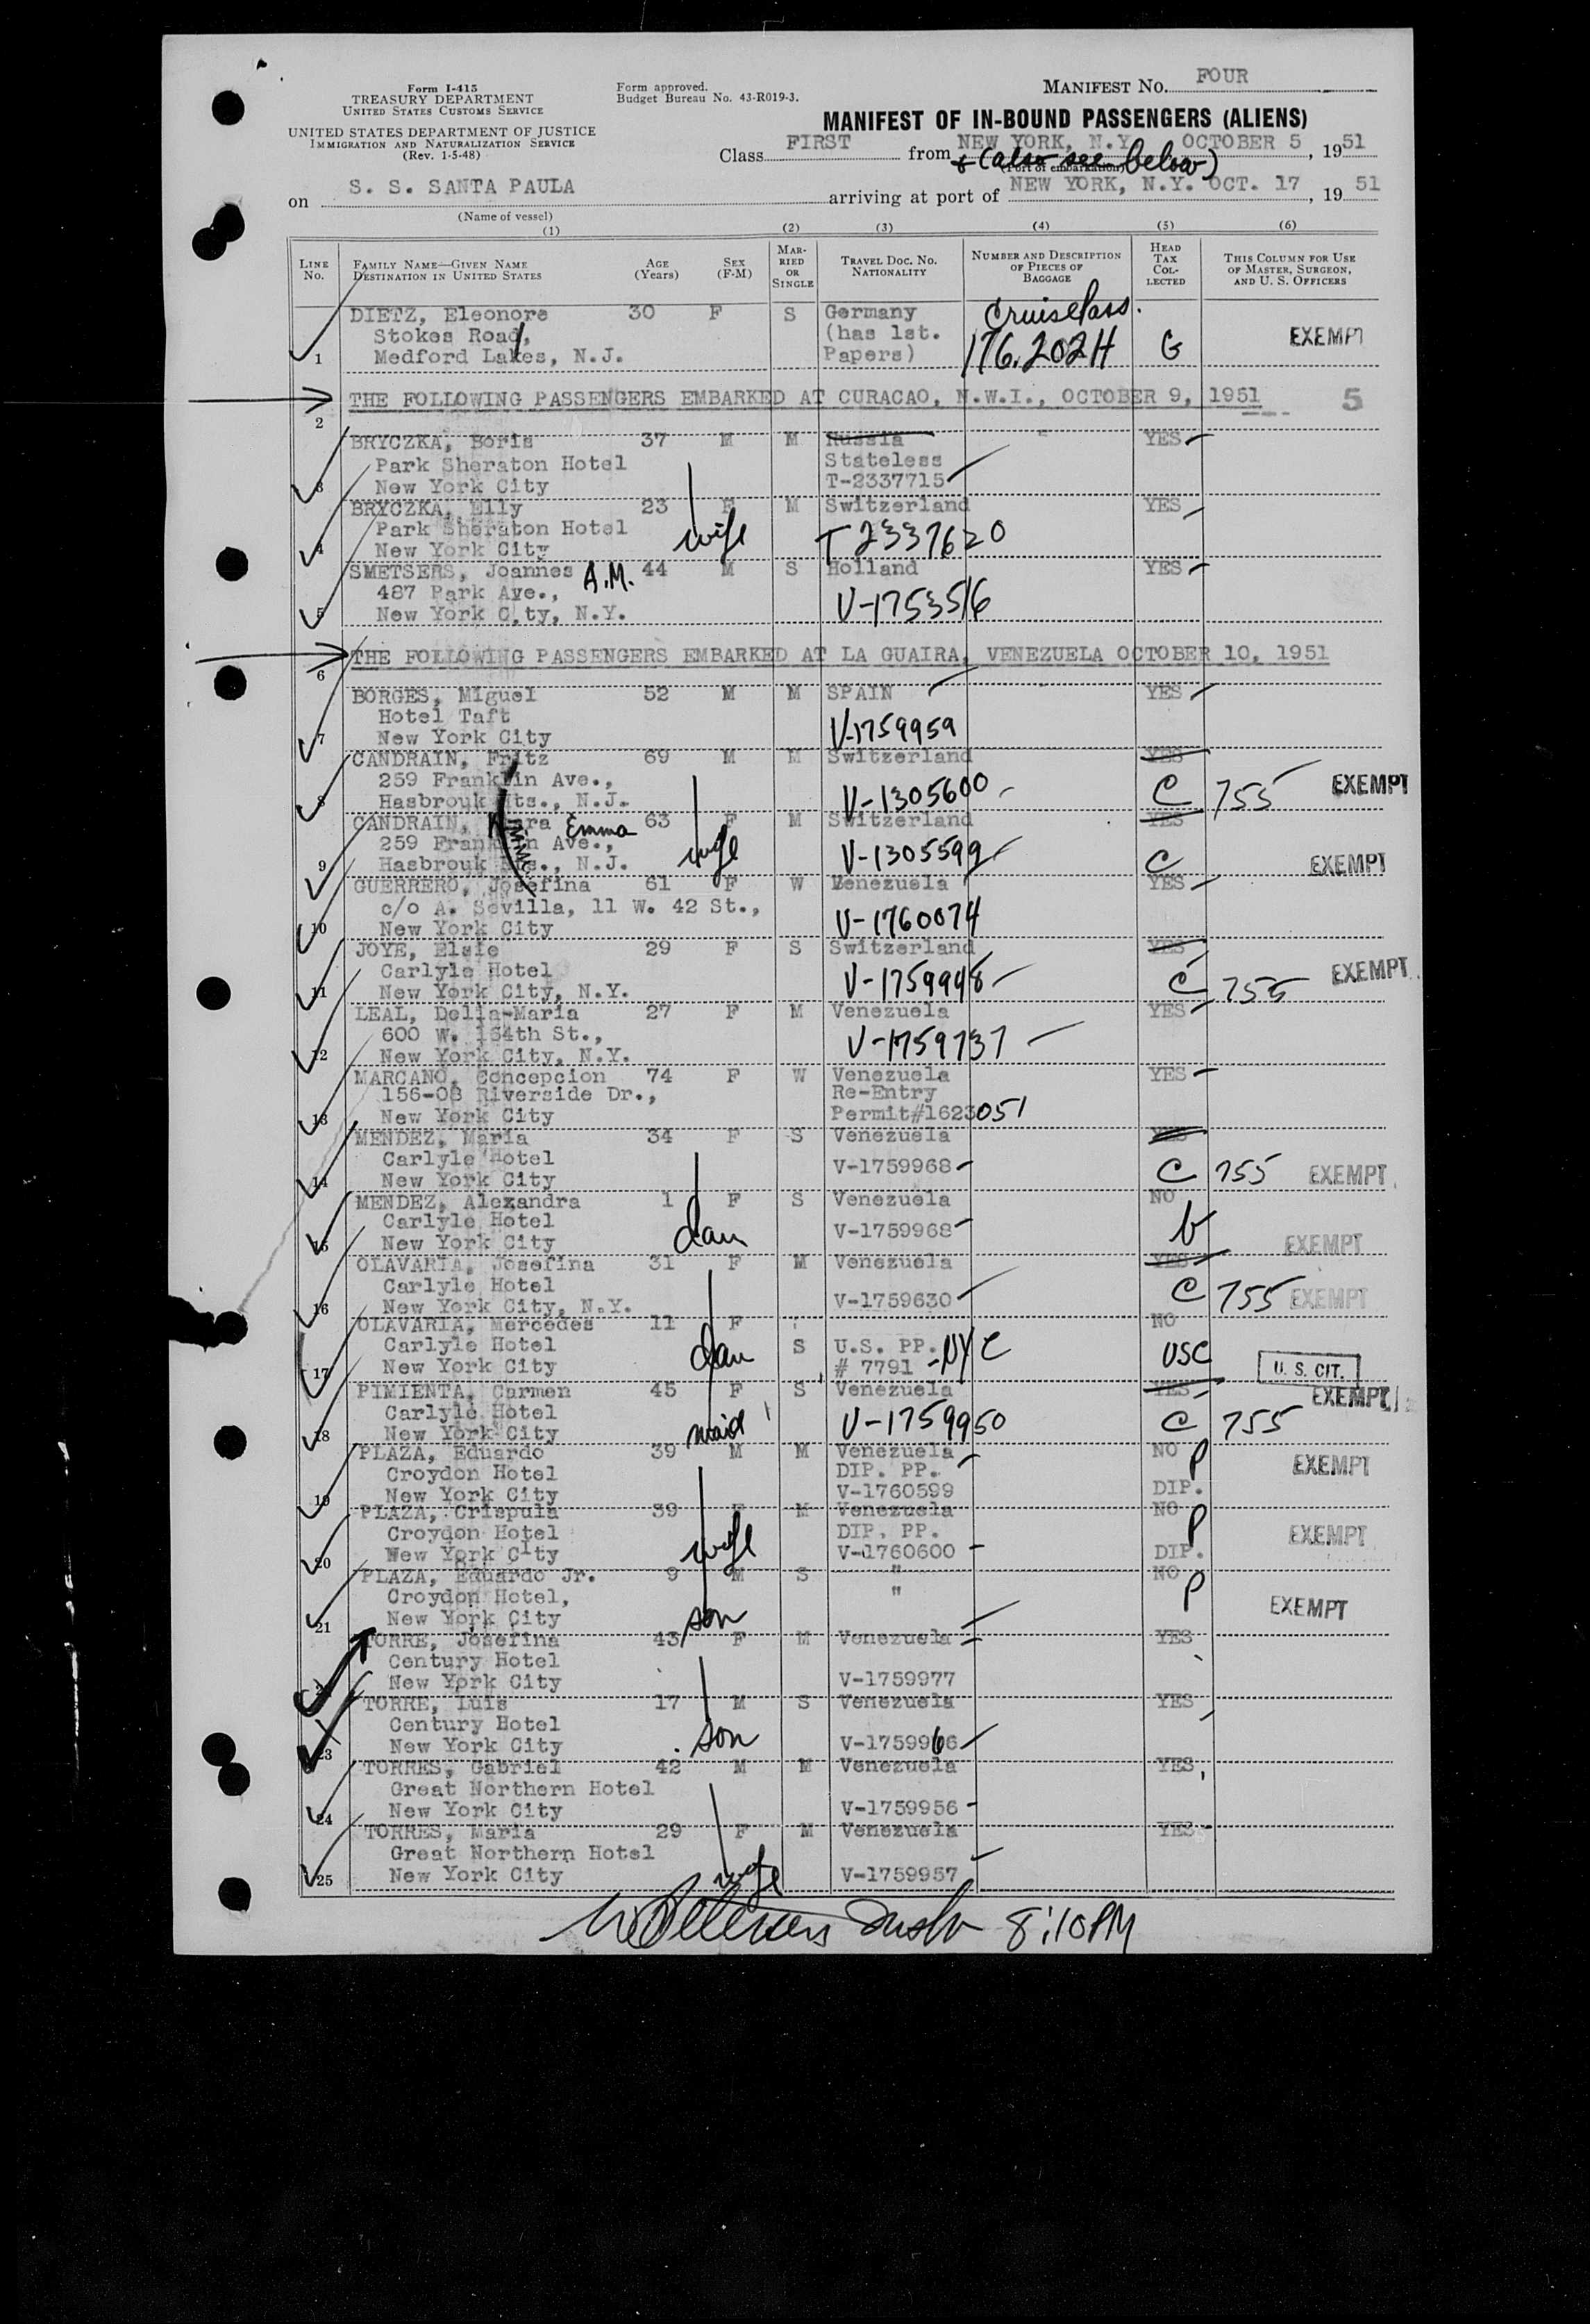 Form I-415
TREASURY DEPARTMENT
UNITED STATES CUSTOMS SERVICE
UNITED STATES DEPARTMENT OF JUSTICE
IMMIGRATION AND NATURALIZATION SERVICE
(Rev. 1-5-48)
Form approved.
Budget Bureau No. 43-R019-3.
MANIFEST NO. FOUR
MANIFEST OF IN-BOUND PASSENGERS (ALIENS)
Class FIRST from NEW YORK, N.Y. OCTOBER 5, 1951
(also see below)
(Port of embarkation)
on S. S. SANTA PAULA arriving at port of NEW YORK, N.Y. OCT. 17, 1951
(Name of vessel)
(1) (2) (3) (4) (5) (6)
LINE NO. FAMILY NAME—GIVEN NAME DESTINATION IN UNITED STATES AGE (Years) SEX (F-M) MARRIED OR SINGLE TRAVEL DOC. NO. NATIONALITY NUMBER AND DESCRIPTION OF PIECES OF BAGGAGE HEAD TAX COLLECTED THIS COLUMN FOR USE OF MASTER, SURGEON, AND U. S. OFFICERS
DIETZ, Eleonore 30 F S Germany
Stokes Road, (has 1st. 176.202H G EXEMPT
1 Medford Lakes, N.J. Papers)
THE FOLLOWING PASSENGERS EMBARKED AT CURACAO, N.W.I., OCTOBER 9, 1951 5
2
BRYCZKA, Boris 37 M M Russia YES
Park Sheraton Hotel Stateless
3 New York City T-2337715
BRYCZKA, Elly 23 F M Switzerland YES
Park Sheraton Hotel wife T 2337620
4 New York City
SMETSERS, Joannes A.M. 44 M S Holland YES
487 Park Ave., V-1753516
5 New York C.ty, N.Y.
THE FOLLOWING PASSENGERS EMBARKED AT LA GUAIRA, VENEZUELA OCTOBER 10, 1951
6
BORGES, Miguel 52 M M SPAIN YES
Hotel Taft V-1759959
7 New York City
CANDRAIN, Fritz 69 M M Switzerland YES
259 Franklin Ave., V-1305600 C 755 EXEMPT
8 Hasbrouk Hts., N.J.
CANDRAIN, Emma 63 F M Switzerland YES
259 Franklin Ave., wife V-1305599 C EXEMPT
9 Hasbrouk Hts., N.J.
GUERRERO, Josefina 61 F W Venezuela YES
c/o A. Sevilla, 11 W. 42 St., V-1760074
10 New York City
JOYE, Elsie 29 F S Switzerland YES
Carlyle Hotel V-1759948 C 755 EXEMPT
11 New York City, N.Y.
LEAL, Delia-Maria 27 F M Venezuela YES
600 W. 164th St., V-1759737
12 New York City, N.Y.
MARCANO, Concepcion 74 F W Venezuela YES
156-08 Riverside Dr., Re-Entry
13 New York City Permit#1623051
MENDEZ, Maria 34 F S Venezuela YES
Carlyle Hotel V-1759968 C 755 EXEMPT
14 New York City
MENDEZ, Alexandra 1 F S Venezuela NO
Carlyle Hotel dau V-1759968 b EXEMPT
15 New York City
OLAVARIA, Josefina 31 F M Venezuela YES
Carlyle Hotel C 755 EXEMPT
16 New York City, N.Y. V-1759630
OLAVARIA, Mercedes 11 F NO
Carlyle Hotel dau S U.S. PP. -NYC USC U. S. CIT.
17 New York City # 7791
PIMIENTA, Carmen 45 F S Venezuela YES EXEMPT
Carlyle Hotel maid V-1759950 C 755
18 New York City
PLAZA, Eduardo 39 M M Venezuela NO P
Croydon Hotel DIP. PP. EXEMPT
19 New York City V-1760599 DIP.
PLAZA, Crispula 39 F M Venezuela NO
Croydon Hotel wife DIP. PP. P EXEMPT
20 New York City V-1760600 DIP.
PLAZA, Eduardo Jr. 9 M S " NO
Croydon Hotel, " P EXEMPT
21 New York City son
TORRE, Josefina 43 F M Venezuela YES
Century Hotel
New York City V-1759977
TORRE, Luis 17 M S Venezuela YES
Century Hotel son
23 New York City V-1759966
TORRES, Gabriel 42 M M Venezuela YES
Great Northern Hotel
24 New York City V-1759956
TORRES, Maria 29 F M Venezuela YES
Great Northern Hotel
25 New York City wife V-1759957
8:10PM